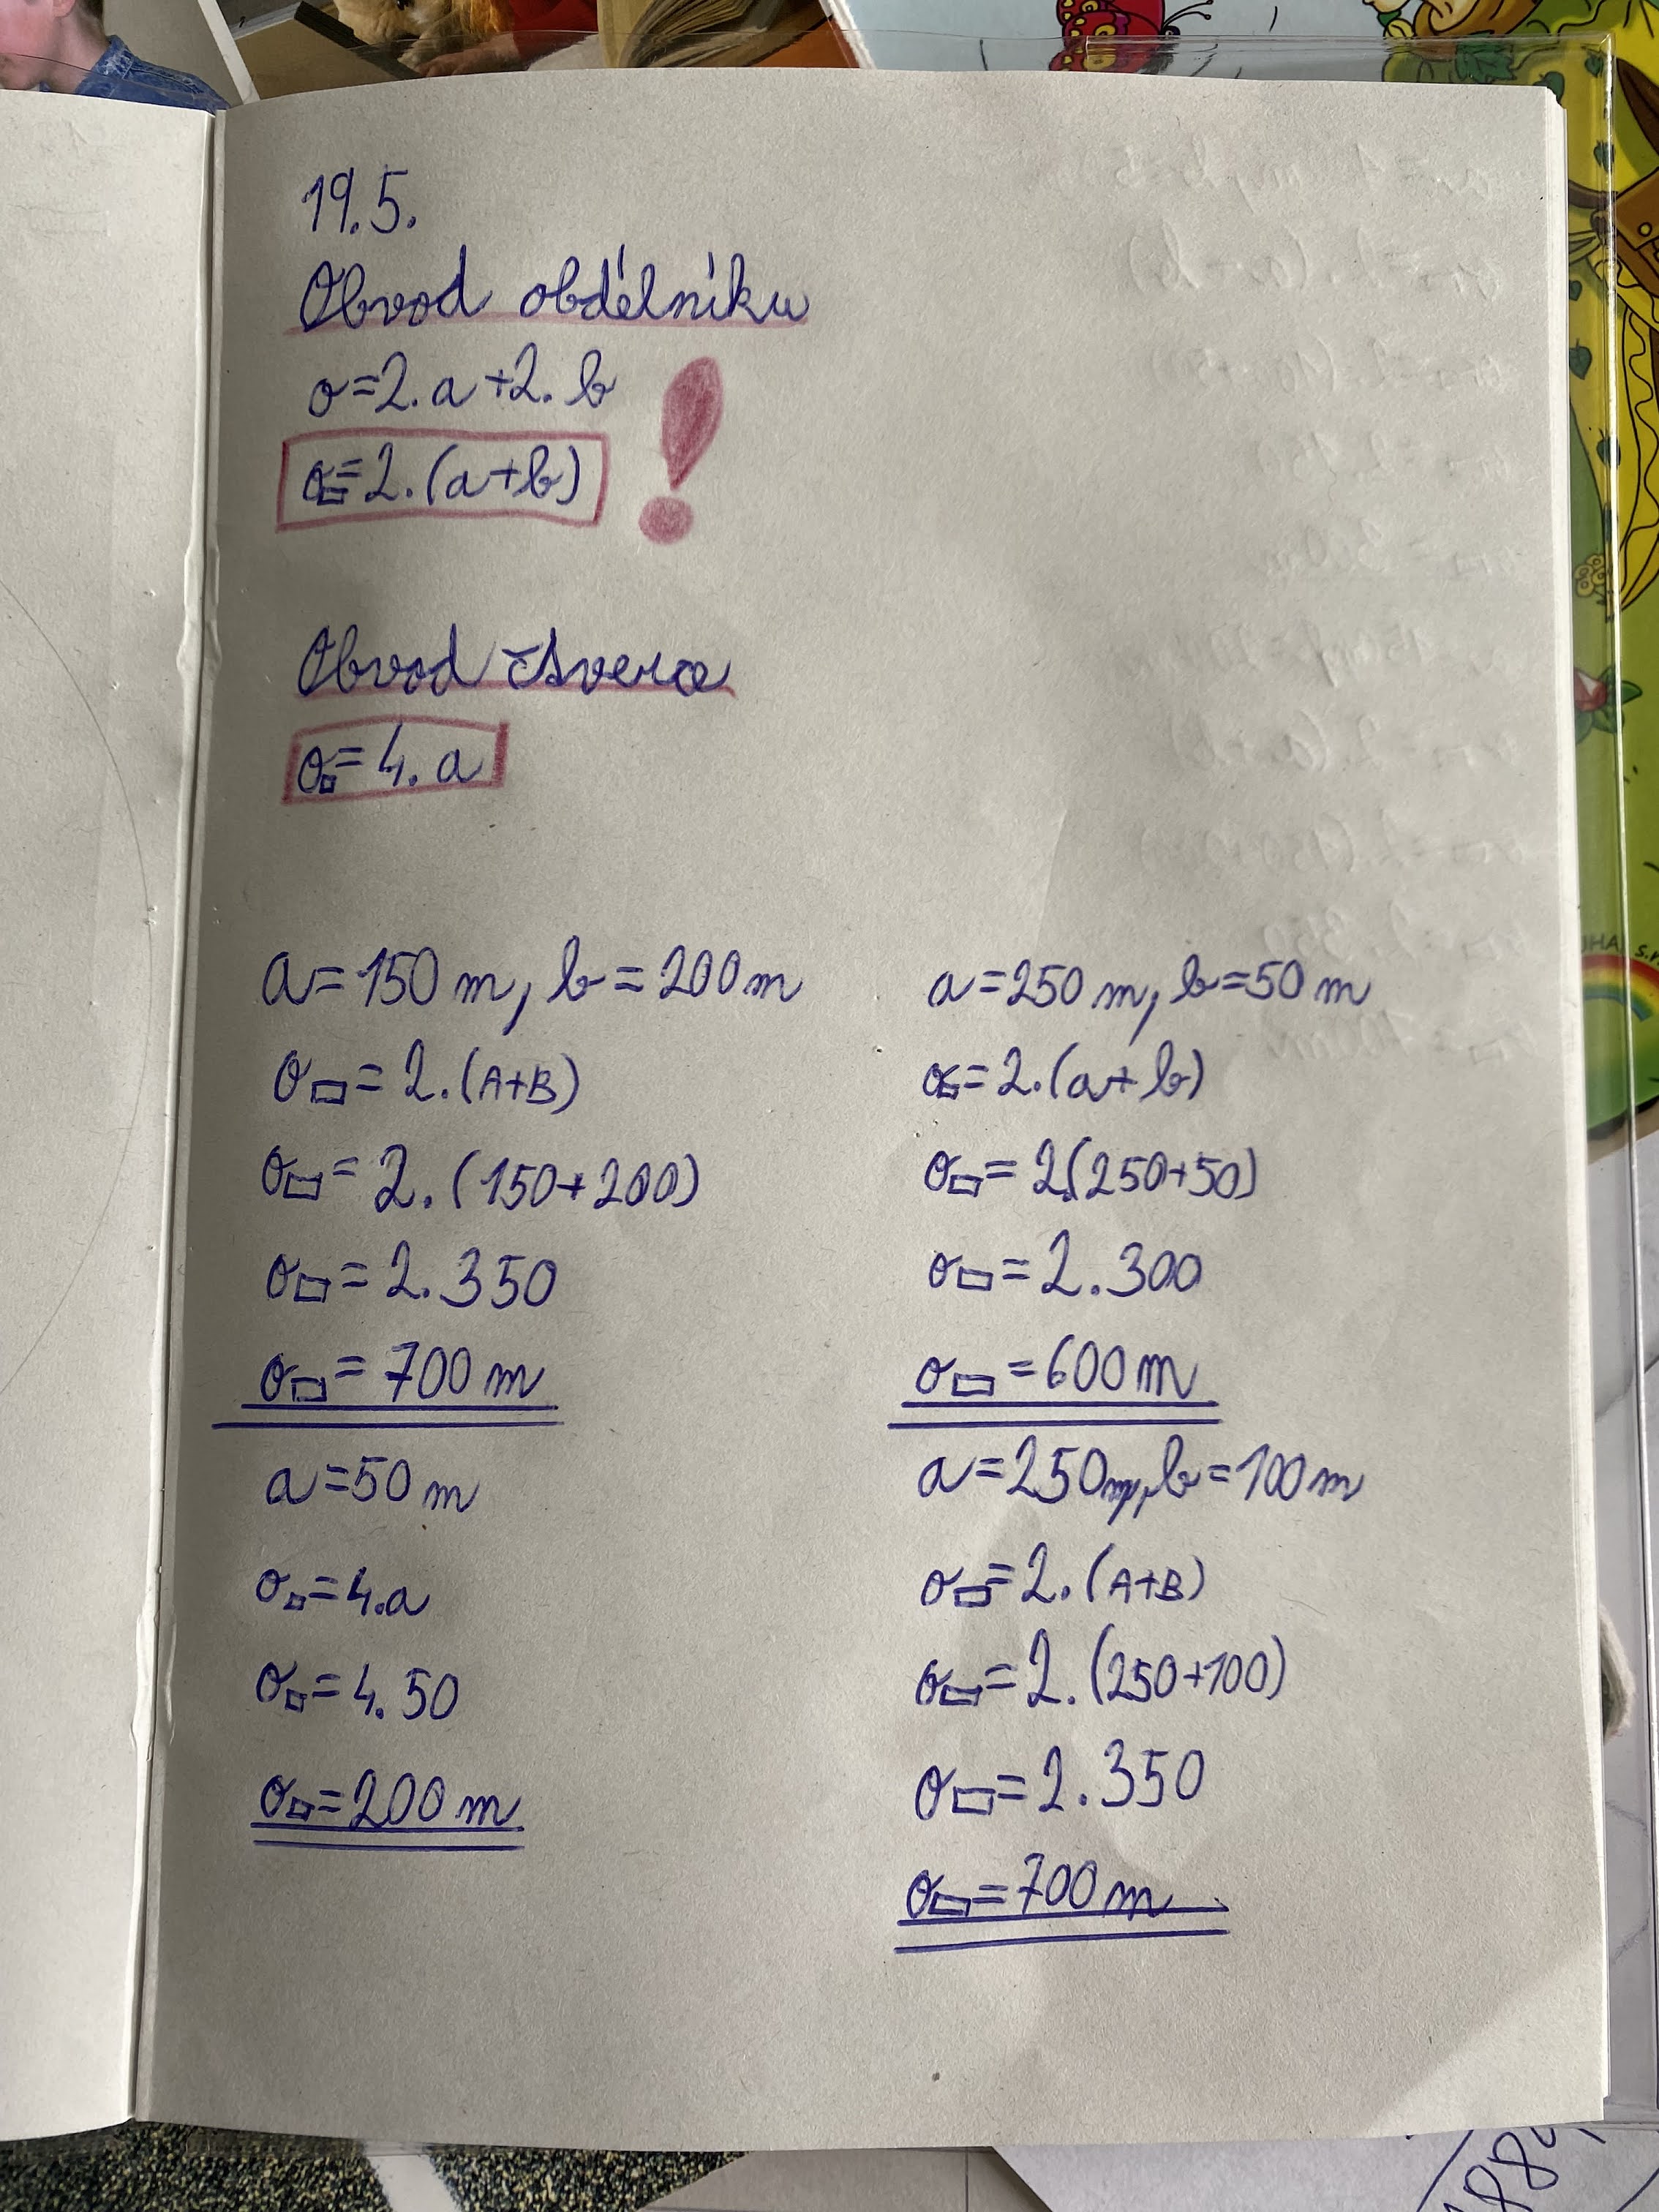 19.5.
Obvod obdélníku
o=2.a+2.b
o▭=2.(a+b)
!
Obvod čtverce
o□=4.a
a=150 m, b=200 m
o▭=2.(A+B)
o▭=2.(150+200)
o▭=2.350
o▭=700 m
a=50 m
o□=4.a
o□=4.50
o□=200 m
a=250 m, b=50 m
o▭=2.(a+b)
o▭=2.(250+50)
o▭=2.300
o▭=600 m
a=250 m, b=100 m
o▭=2.(A+B)
o▭=2.(250+100)
o▭=2.350
o▭=700 m
S.P.